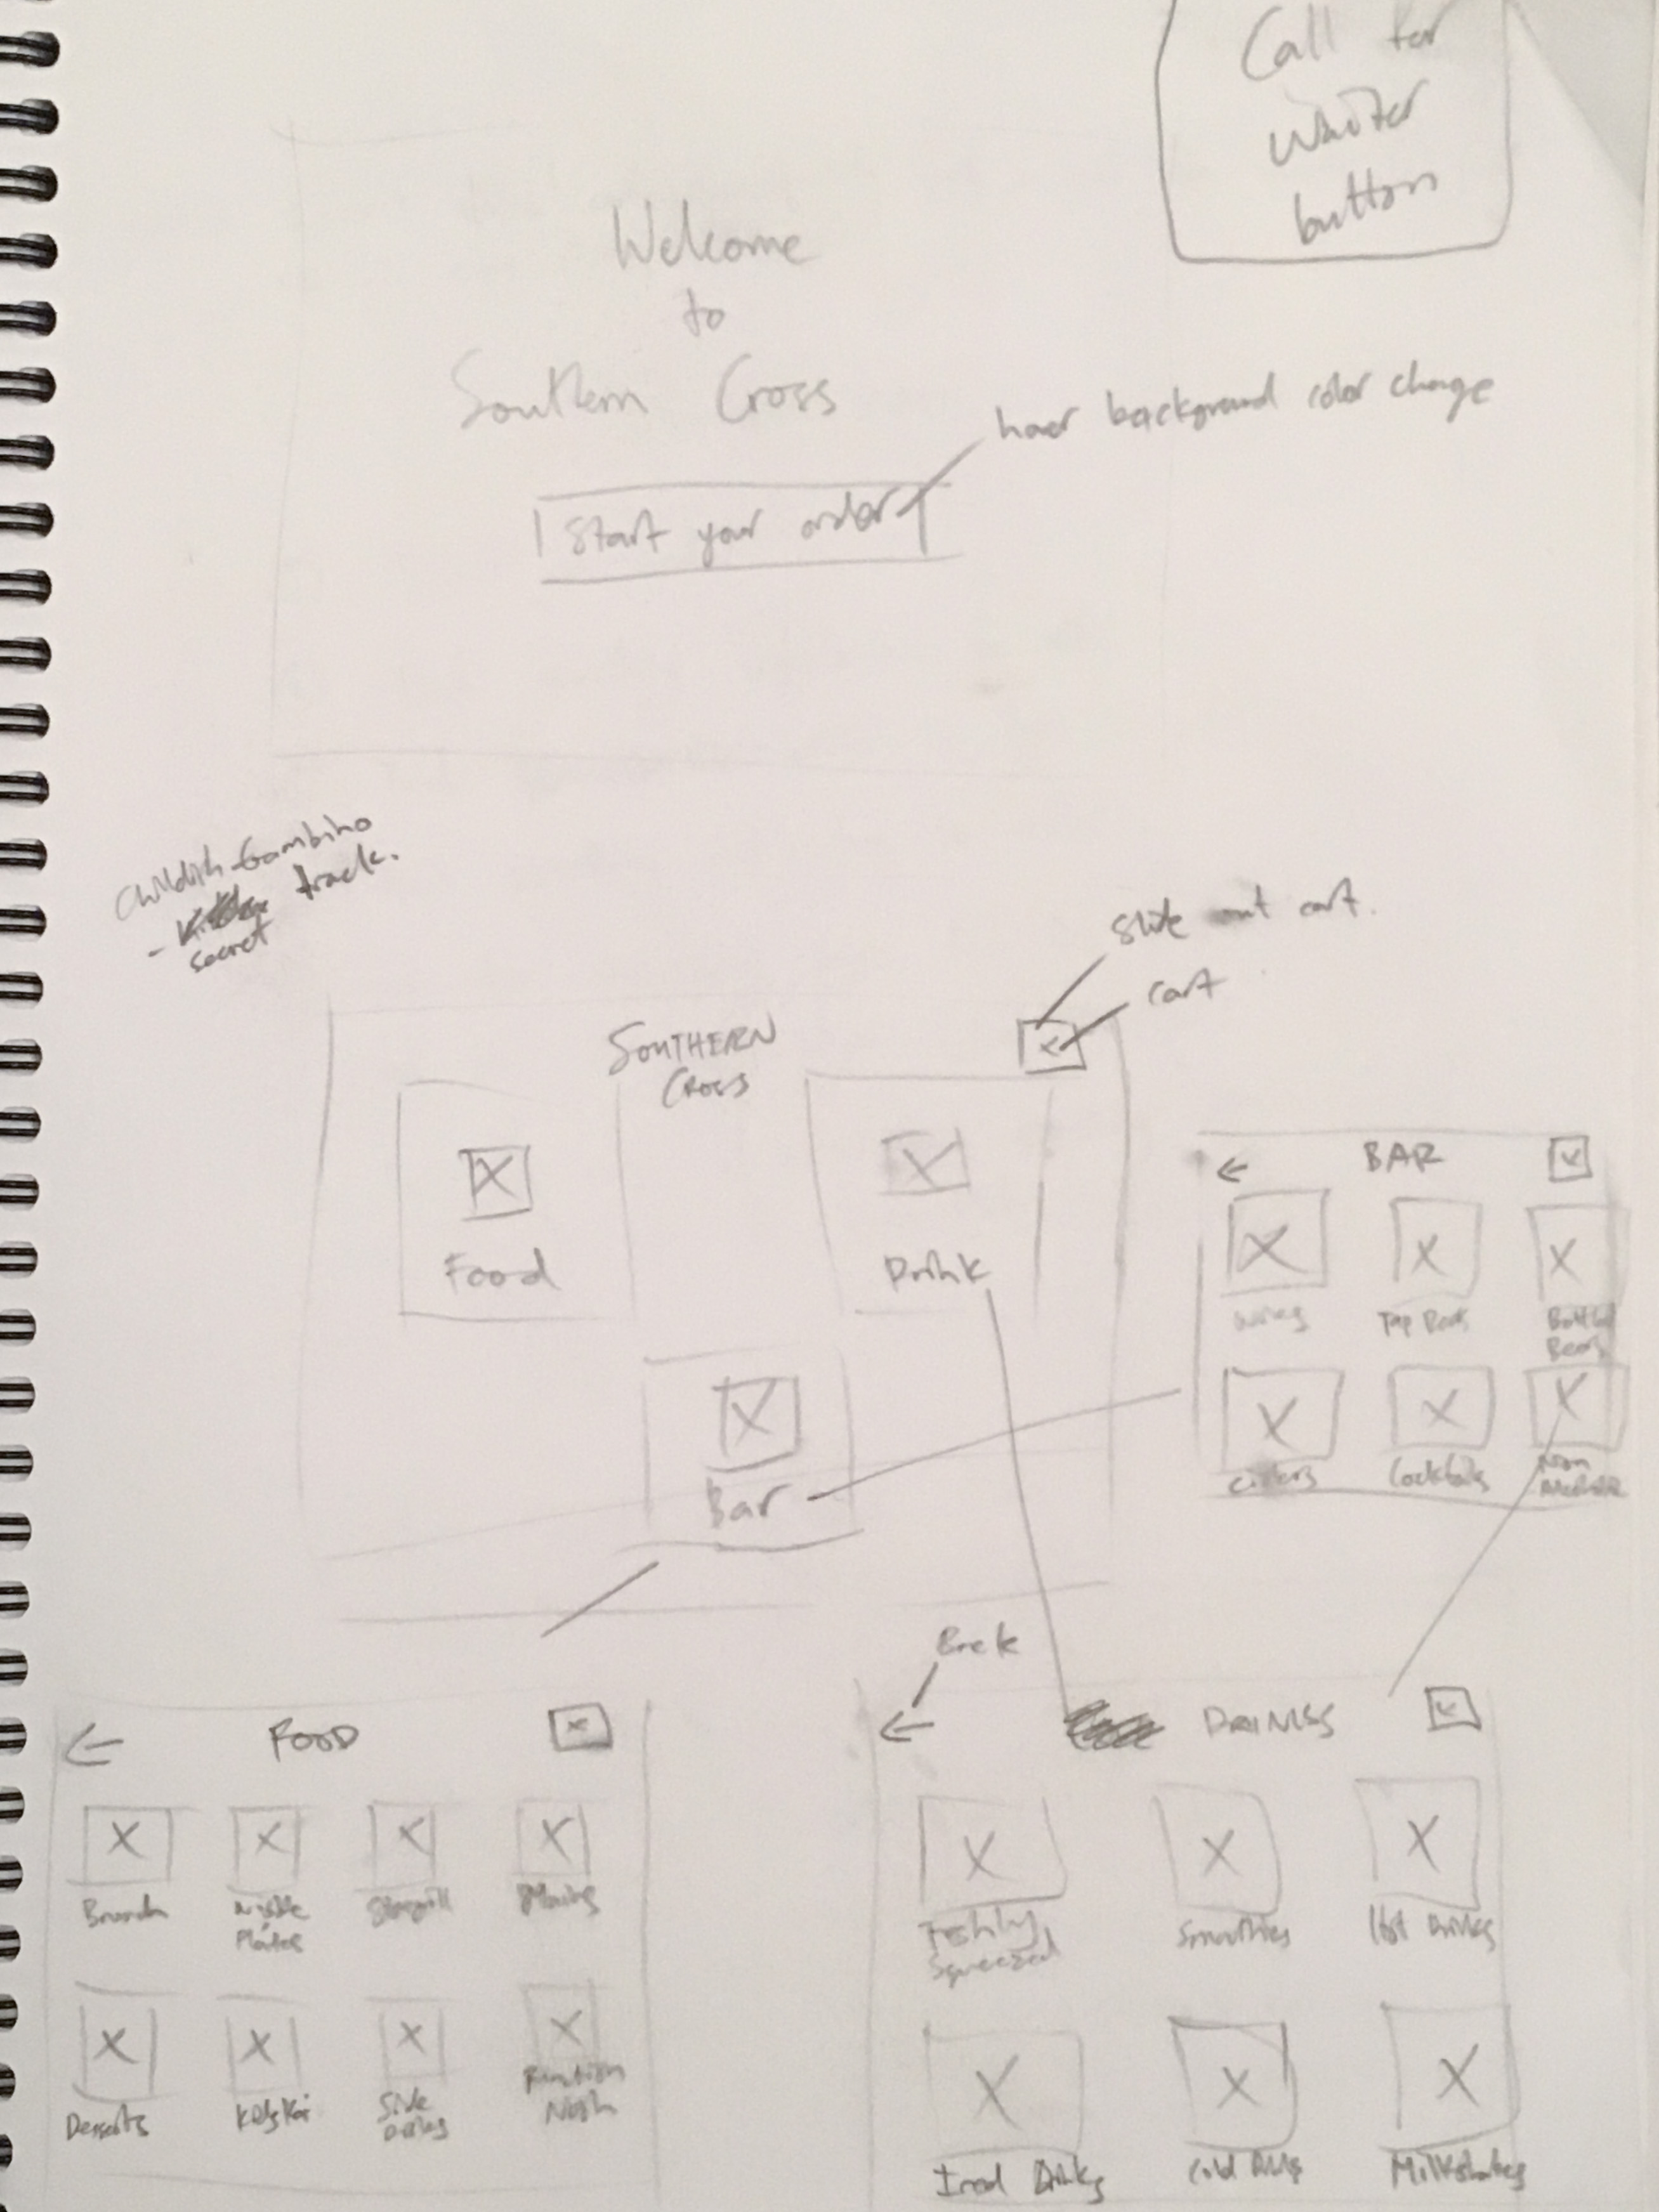 Call for
waiter
button
Welcome
to
Southern Cross
hover background color change
Start your order
Childish Gambino
- track.
secret
slide out cart.
cart
SOUTHERN
CROSS
Food
Drink
Bar
BAR
Wines
Tap Beers
Bottled
Beers
Ciders
Cocktails
Non
Back
FOOD
Brunch
Plates
Mains
Desserts
Kids Kai
Side
Dishes
Function
Nosh
DRINKS
Freshly
Squeezed
Smoothies
Hot Drinks
Iced Drinks
Cold Drinks
Milkshakes